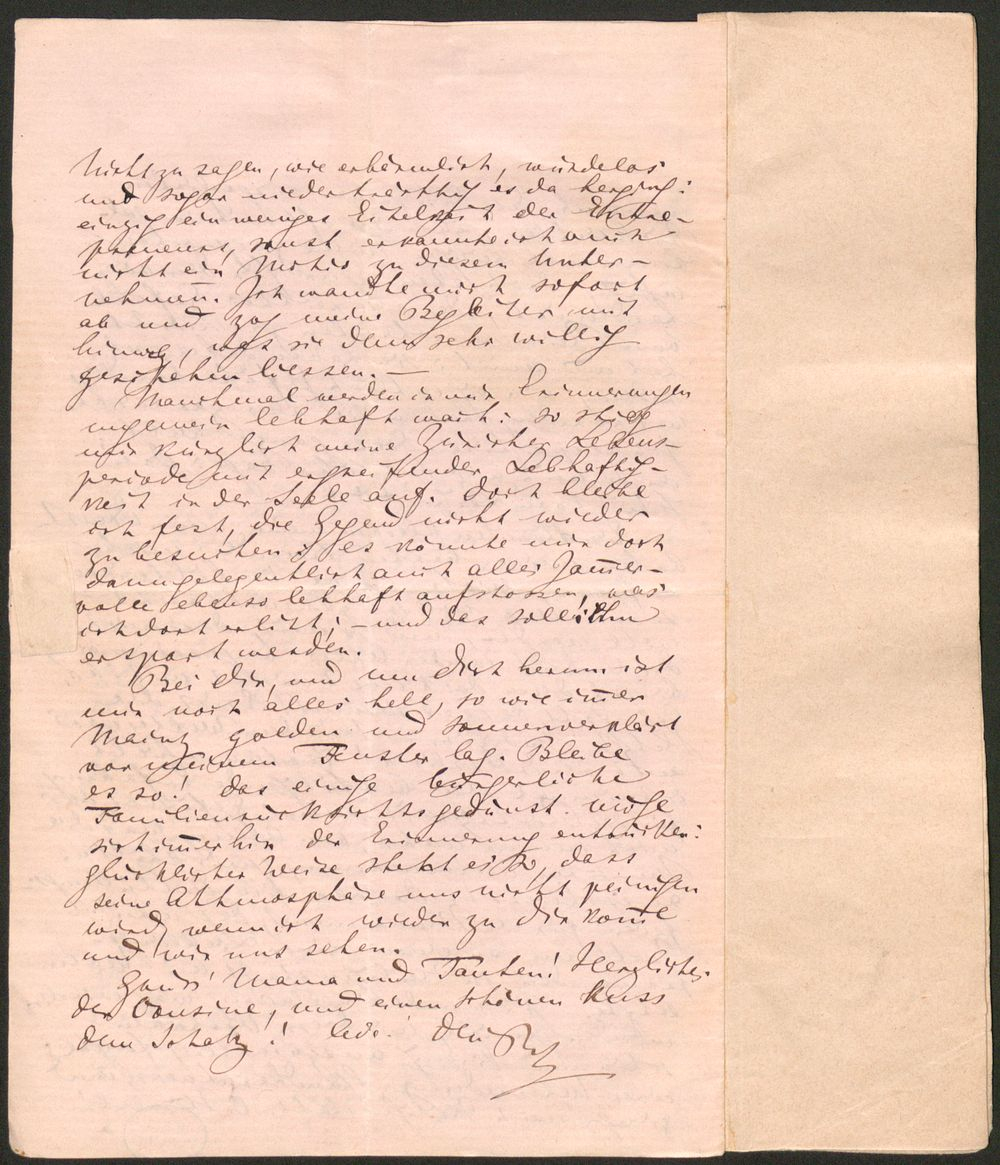 nicht zu sagen, wie erbärmlich, würdelos
und sogar niederträchtig es da herging:
einzig ein weniges Eitelkeit der Entre-
preneurs, sonst erkannte ich auch
nicht ein Motiv zu diesem Unter-
nehmen. Ich wandte mich sofort
ab und zog meine Begleiter mit
hinweg, was sie denn sehr willig
geschehen liessen. —
Manchmal werden in mir Erinnerungen
ungemein lebhaft wach: so stieg
mir kürzlich meine Züricher Lebens-
periode mit ergreifender Lebhaftig-
keit in der Seele auf. Doch bleibe
ich fest, die Gegend nicht wieder
zu besuchen: es könnte mir dort
dann gelegentlich auch alles Jam̅er-
volle ebenso lebhaft aufstossen, was
ich dort erlitt; – und das soll ihm
erspart werden.
Bei dir, und um dich herum ist
mir noch alles hell, so wie im̅er
Mainz golden und sonnenverklärt
vor meinem Fenster lag. Bleibe
es so! das einige bürgerliche
Familienrücksichtsgedunst möge
sich im̅erhin der Erinnerung
glücklicher Weise steht es so, dass
seine Athmosphäre uns nicht peinigen
wird, wenn ich wieder zu dir kom̅e
und wir uns sehen.
Mama und Tanten! Herzliches
der Cousine, und einen schönen Kuss
dem Schatz! dein